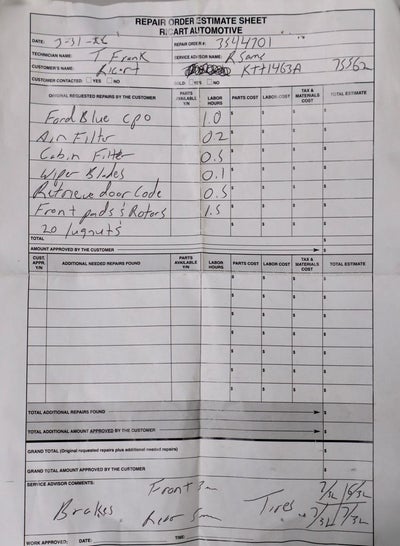 REPAIR ORDER ESTIMATE SHEET
RICART AUTOMOTIVE
DATE: 3-31-
REPAIR ORDER #: 3544701
TECHNICIAN NAME: T Frank
SERVICE ADVISOR NAME: R
CUSTOMER'S NAME: Ricart
KTT1463A 75562
CUSTOMER CONTACTED: YES NO
SOLD: YES NO
ORIGINAL REQUESTED REPAIRS BY THE CUSTOMER PARTS AVAILABLE Y/N LABOR HOURS PARTS COST LABOR COST TAX & MATERIALS COST TOTAL ESTIMATE
Ford Blue CPO 1.0 $ $ $ $
Air Filter 0.2 $ $ $ $
Cabin Filter 0.5 $ $ $ $
Wiper Blades 0.1 $ $ $ $
Retrieve door Code 0.5 $ $ $ $
Front pads & Rotors 1.5 $ $ $ $
20 lugnuts
TOTAL $
AMOUNT APPROVED BY THE CUSTOMER $
CUST. APPR. Y/N ADDITIONAL NEEDED REPAIRS FOUND PARTS AVAILABLE Y/N LABOR HOURS PARTS COST LABOR COST TAX & MATERIALS COST TOTAL ESTIMATE
$ $ $ $
$ $ $ $
$ $ $ $
$ $ $ $
$ $ $ $
$ $ $ $
$ $ $ $
TOTAL ADDITIONAL REPAIRS FOUND $
TOTAL ADDITIONAL AMOUNT APPROVED BY THE CUSTOMER $
GRAND TOTAL (Original requested repairs plus additional needed repairs) $
GRAND TOTAL AMOUNT APPROVED BY THE CUSTOMER $
SERVICE ADVISOR COMMENTS:
Front 3m 7/32 6/32
Brakes Tires
Rear 5mm 7/32 7/32
WORK APPROVED: DATE: TIME: